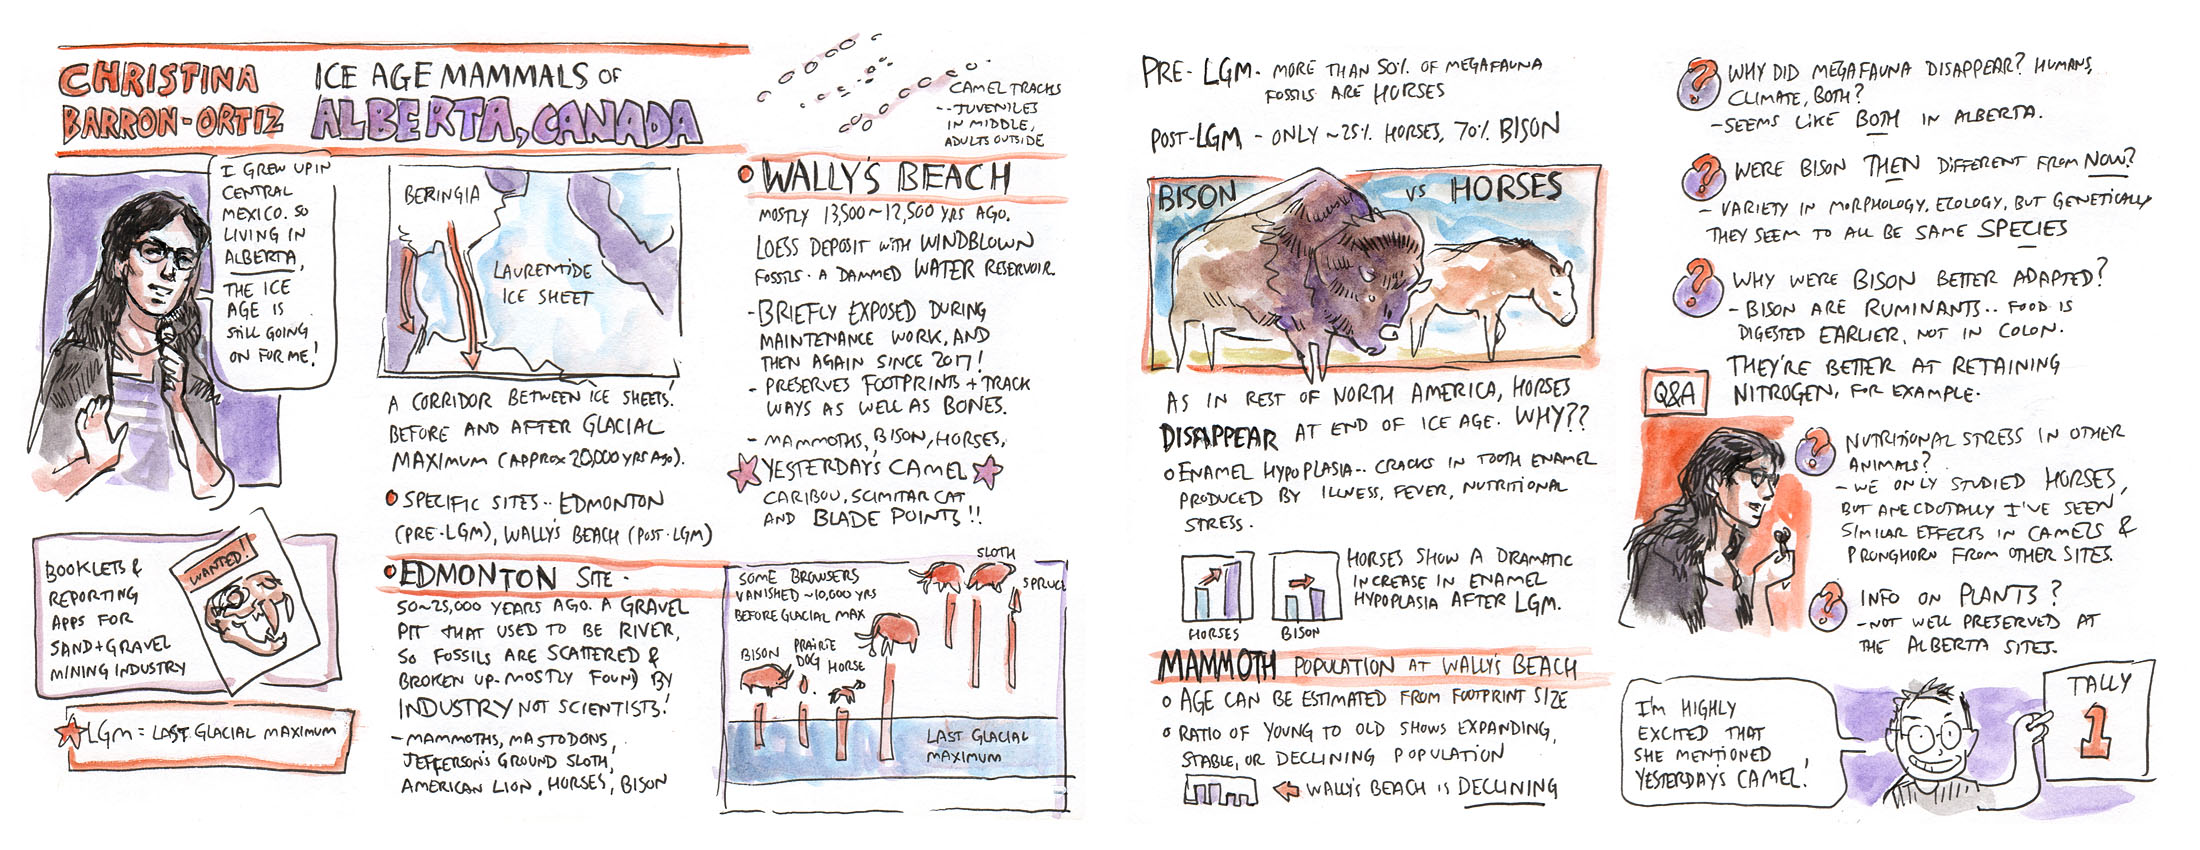 CHRISTINA
BARRON-ORTIZ
ICE AGE MAMMALS OF
ALBERTA, CANADA
I GREW UP IN
CENTRAL
MEXICO. SO
LIVING IN
ALBERTA,
THE ICE
AGE IS
STILL GOING
ON FOR ME!
BOOKLETS &
REPORTING
APPS FOR
SAND+GRAVEL
MINING INDUSTRY
WANTED!
LGM = LAST GLACIAL MAXIMUM
BERINGIA
LAURENTIDE
ICE SHEET
A CORRIDOR BETWEEN ICE SHEETS!
BEFORE AND AFTER GLACIAL
MAXIMUM (APPROX 20,000 YRS AGO).
SPECIFIC SITES.. EDMONTON
(PRE-LGM), WALLY'S BEACH (POST-LGM)
EDMONTON SITE -
50~25,000 YEARS AGO. A GRAVEL
PIT THAT USED TO BE RIVER,
SO FOSSILS ARE SCATTERED &
BROKEN UP. MOSTLY FOUND BY
INDUSTRY NOT SCIENTISTS!
- MAMMOTHS, MASTODONS,
JEFFERSON'S GROUND SLOTH,
AMERICAN LION, HORSES, BISON
CAMEL TRACKS
-- JUVENILES
IN MIDDLE,
ADULTS OUTSIDE
WALLY'S BEACH
MOSTLY 13,500~12,500 YRS AGO.
LOESS DEPOSIT WITH WINDBLOWN
FOSSILS. A DAMMED WATER RESERVOIR.
- BRIEFLY EXPOSED DURING
MAINTENANCE WORK, AND
THEN AGAIN SINCE 2017!
- PRESERVES FOOTPRINTS + TRACK
WAYS AS WELL AS BONES.
- MAMMOTHS, BISON, HORSES,
YESTERDAY'S CAMEL
CARIBOU, SCIMITAR CAT
AND BLADE POINTS!!
SOME BROWSERS
VANISHED ~10,000 YRS
BEFORE GLACIAL MAX
SLOTH
SPRUCE
BISON
PRAIRIE
DOG
HORSE
LAST GLACIAL
MAXIMUM
PRE-LGM - MORE THAN 50% OF MEGAFAUNA
FOSSILS ARE HORSES
POST-LGM - ONLY ~25% HORSES, 70% BISON
BISON VS HORSES
AS IN REST OF NORTH AMERICA, HORSES
DISAPPEAR AT END OF ICE AGE. WHY??
ENAMEL HYPOPLASIA.. CRACKS IN TOOTH ENAMEL
PRODUCED BY ILLNESS, FEVER, NUTRITIONAL
STRESS.
HORSES
BISON
HORSES SHOW A DRAMATIC
INCREASE IN ENAMEL
HYPOPLASIA AFTER LGM.
MAMMOTH POPULATION AT WALLY'S BEACH
AGE CAN BE ESTIMATED FROM FOOTPRINT SIZE
RATIO OF YOUNG TO OLD SHOWS EXPANDING,
STABLE, OR DECLINING POPULATION
WALLY'S BEACH IS DECLINING
? WHY DID MEGAFAUNA DISAPPEAR? HUMANS,
CLIMATE, BOTH?
- SEEMS LIKE BOTH IN ALBERTA.
? WERE BISON THEN DIFFERENT FROM NOW?
- VARIETY IN MORPHOLOGY, ECOLOGY, BUT GENETICALLY
THEY SEEM TO ALL BE SAME SPECIES
? WHY WERE BISON BETTER ADAPTED?
- BISON ARE RUMINANTS.. FOOD IS
DIGESTED EARLIER, NOT IN COLON.
THEY'RE BETTER AT RETAINING
NITROGEN, FOR EXAMPLE.
Q&A
? NUTRITIONAL STRESS IN OTHER
ANIMALS?
- WE ONLY STUDIED HORSES,
BUT ANECDOTALLY I'VE SEEN
SIMILAR EFFECTS IN CAMELS &
PRONGHORN FROM OTHER SITES.
? INFO ON PLANTS?
- NOT WELL PRESERVED AT
THE ALBERTA SITES.
I'M HIGHLY
EXCITED THAT
SHE MENTIONED
YESTERDAY'S CAMEL!
TALLY
1